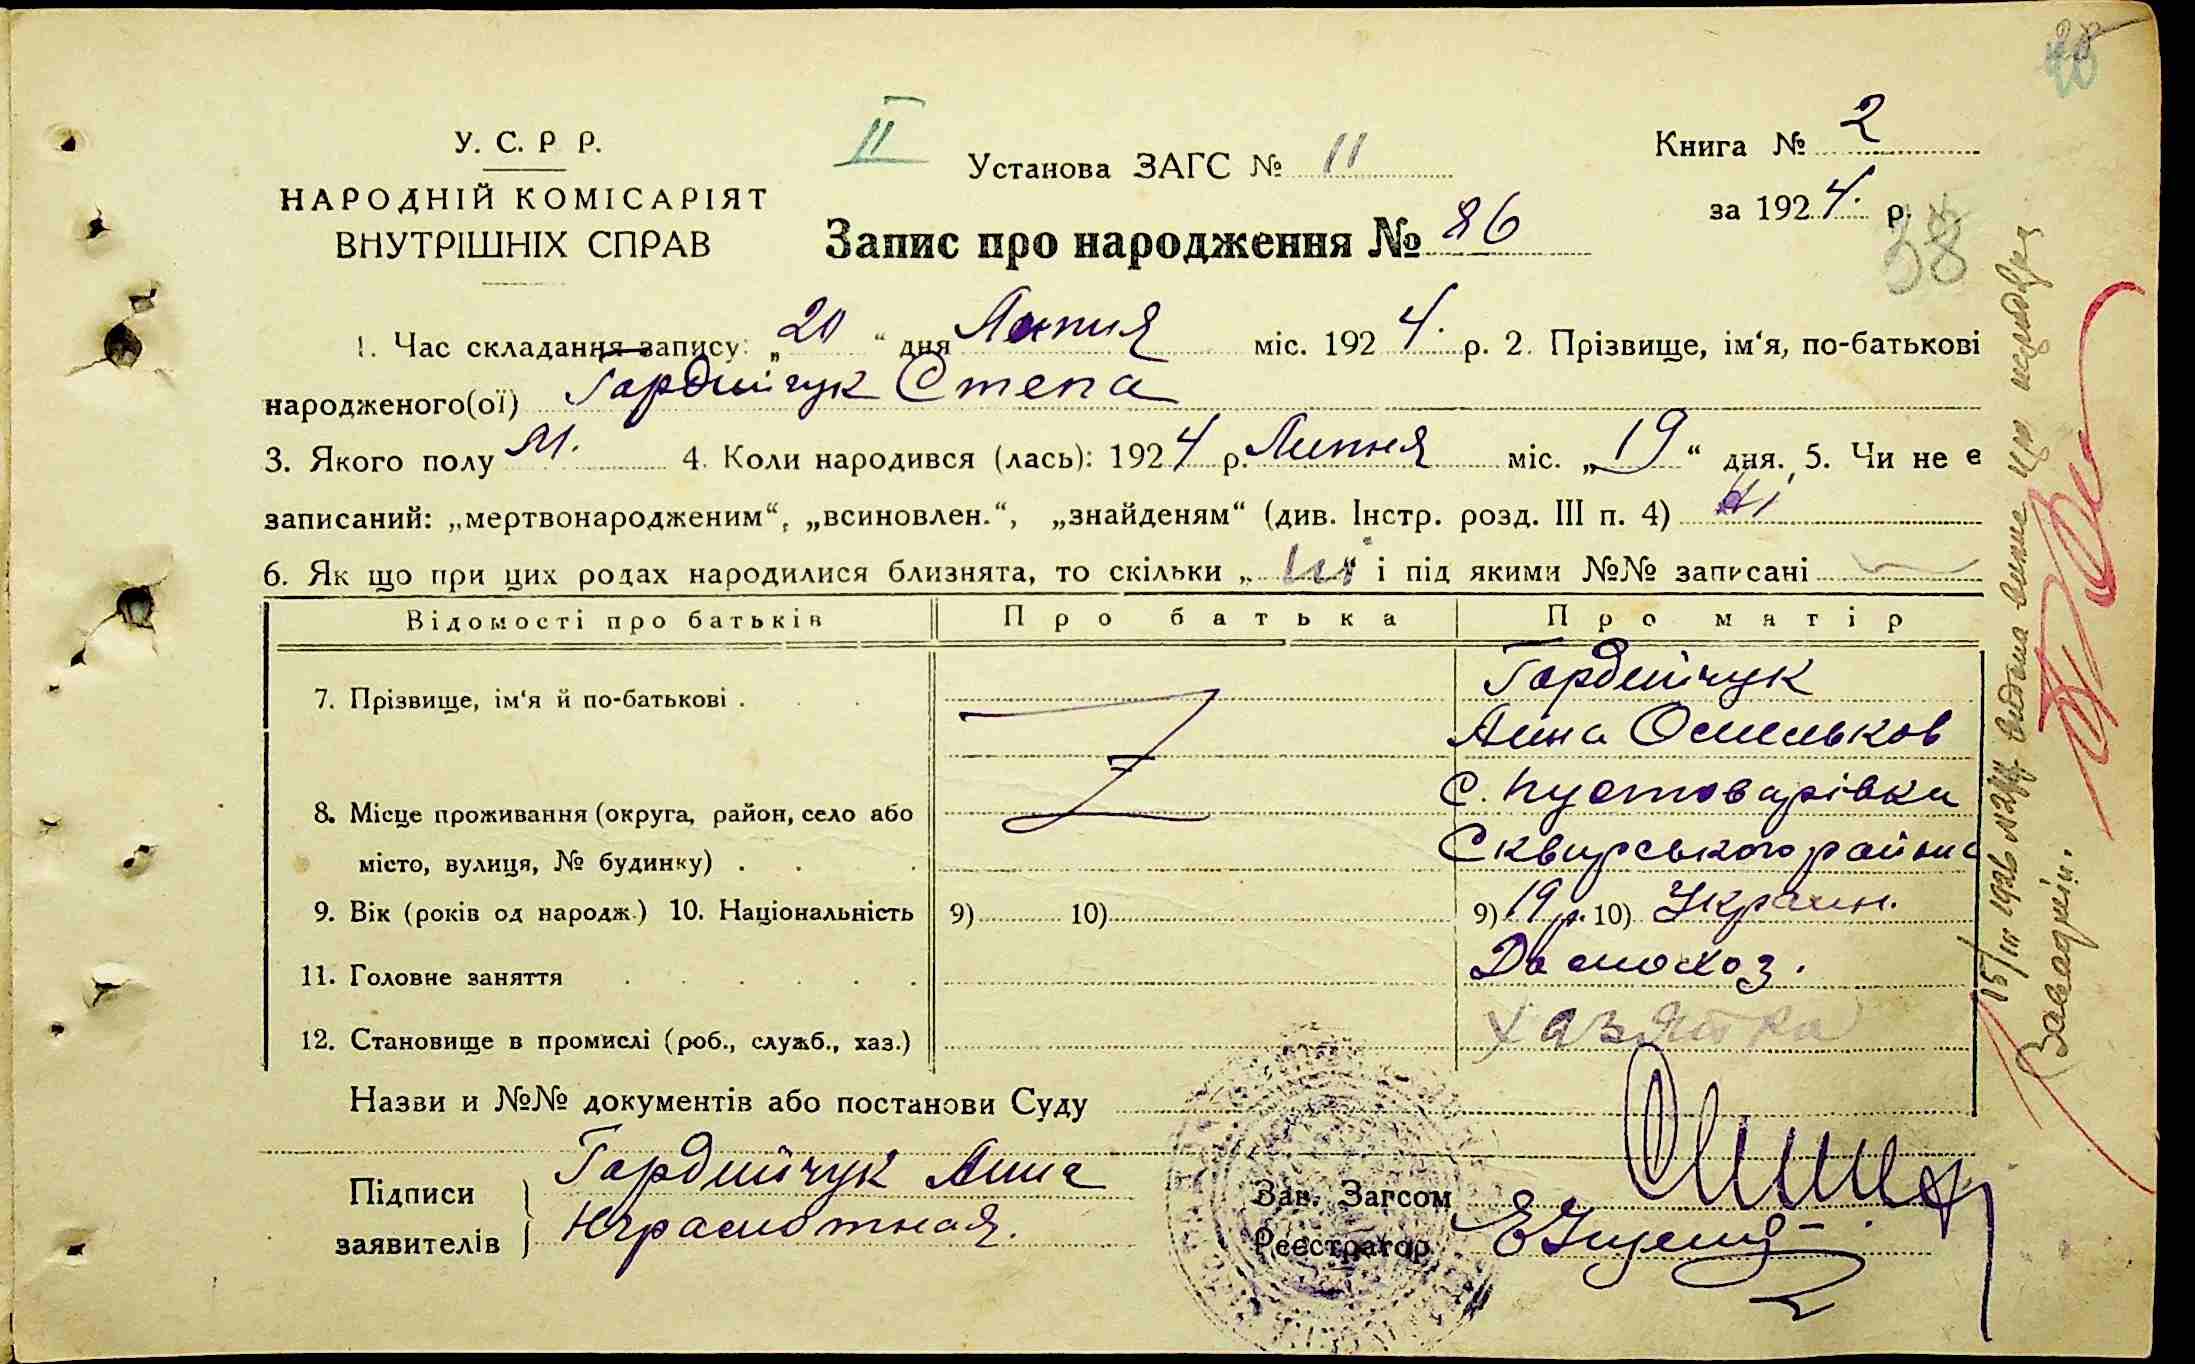 У. С. Р Р.
НАРОДНІЙ КОМІСАРІЯТ
ВНУТРІШНІХ СПРАВ
II
Установа ЗАГС № 11
Книга № 2
за 1924. р.
38
Запис про народження № 86
1. Час складання запису: „20“ дня Липня міс. 1924. р. 2. Прізвище, ім‘я, по-батькові
народженого(ої) Гордийчук Степа
3. Якого полу М. 4. Коли народився (лась): 1924 р. Липня міс. „19“ дня. 5. Чи не є
записаний: „мертвонародженим“, „всиновлен.“, „знайденям“ (див. Інстр. розд. III п. 4) Ні
6. Як що при цих родах народилися близнята, то скільки „ “ і під якими №№ записані
Відомості про батьків Про батька Про матір
7. Прізвище, ім‘я й по-батькові . Гордийчук
Анна Омельков
8. Місце проживання (округа, район, село або С. Пустоварівка
місто, вулиця, № будинку) . Сквирського района
9. Вік (років од народж.) 10. Національність 9) 10) 9) 19 р. 10) Украин.
11. Головне заняття Домохоз.
12. Становище в промислі (роб., служб., хаз.) хазяйка
Назви и №№ документів або постанови Суду
Підписи заявителів Гордийчук Анна
Неграмотная.
Зав. Загсом
Реєстратор
15/III 1926